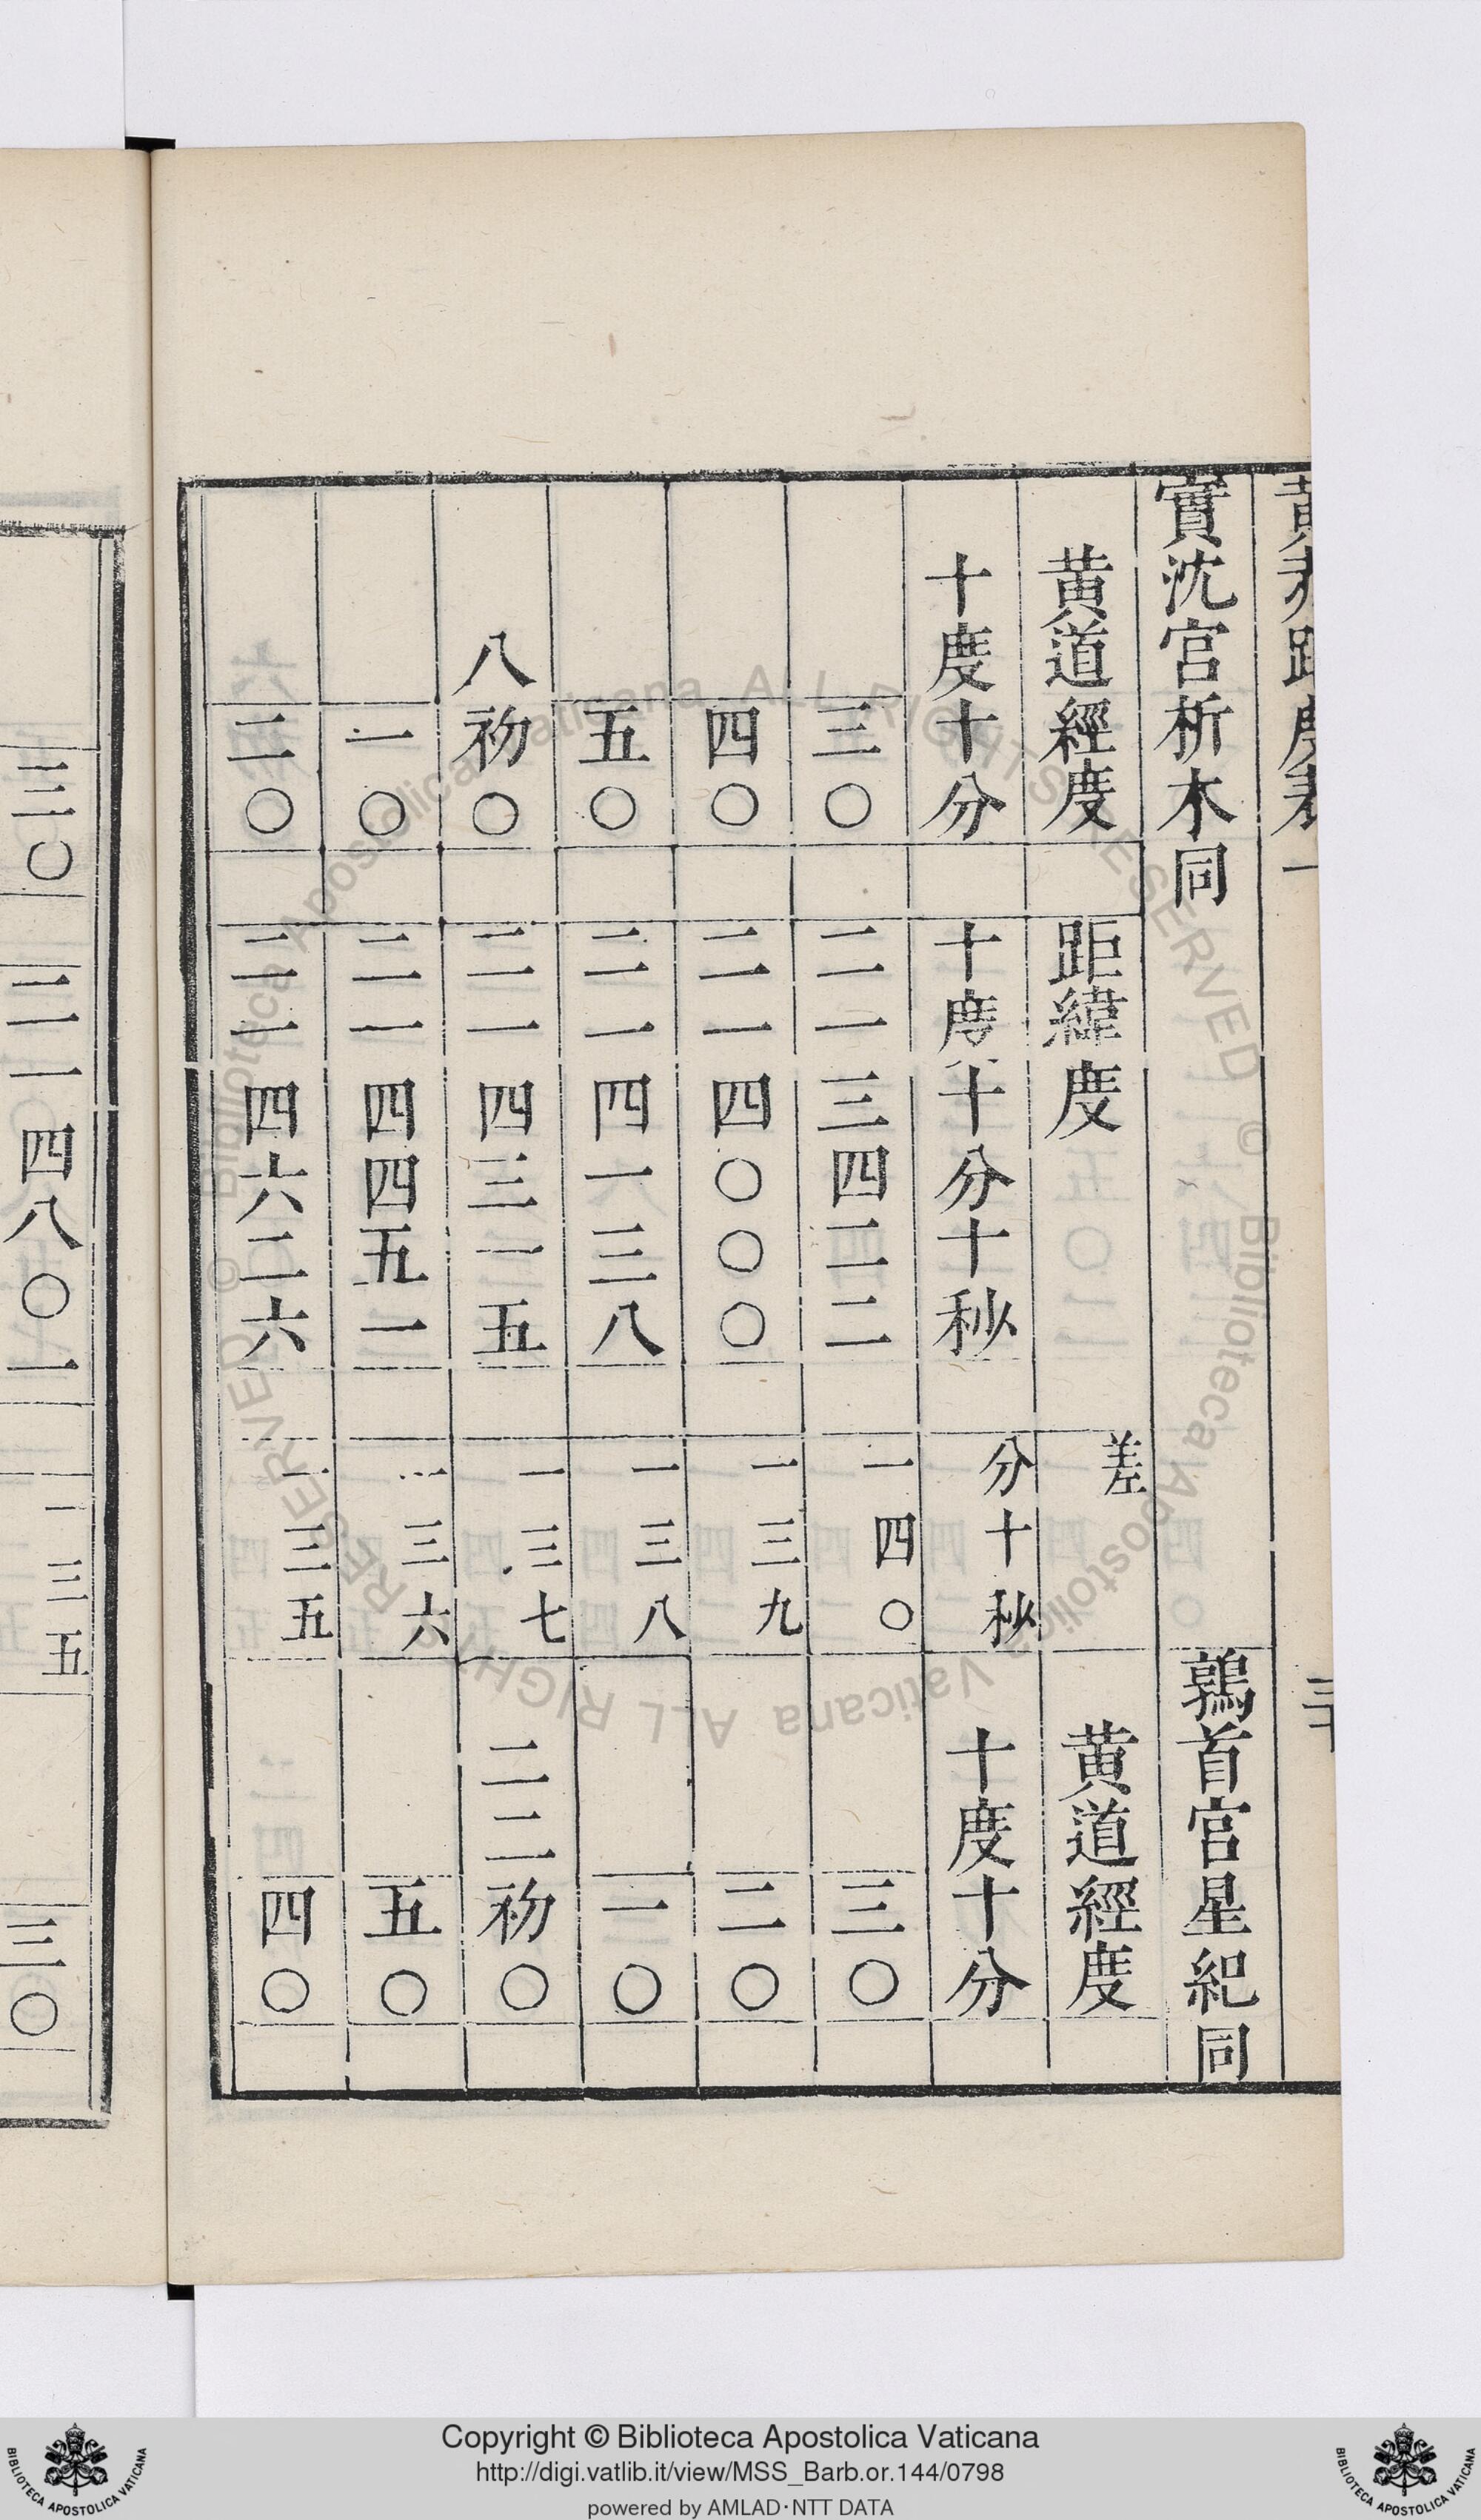 黃赤距度表一 三十
實沈宮析木同 鶉首宮星紀同
黃道經度 距緯度 差 黃道經度
十度十分 十度十分十秒 分十秒 十度十分
三〇 二一三四二二 一四〇 三〇
四〇 二一四〇〇〇 一三九 二〇
五〇 二一四一三八 一三八 一〇
八初〇 二一四三一五 一三七 二二初〇
一〇 二一四四五一 一三六 五〇
二〇 二一四六二六 一三五 四〇
三〇 二一四八〇一 一三五 三〇
Biblioteca Apostolica Vaticana ALL RIGHTS RESERVED ©
Biblioteca Apostolica Vaticana ALL RIGHTS RESERVED ©
BIBLIOTECA APOSTOLICA VATICANA
Copyright © Biblioteca Apostolica Vaticana
http://digi.vatlib.it/view/MSS_Barb.or.144/0798
powered by AMLAD·NTT DATA
BIBLIOTECA APOSTOLICA VATICANA